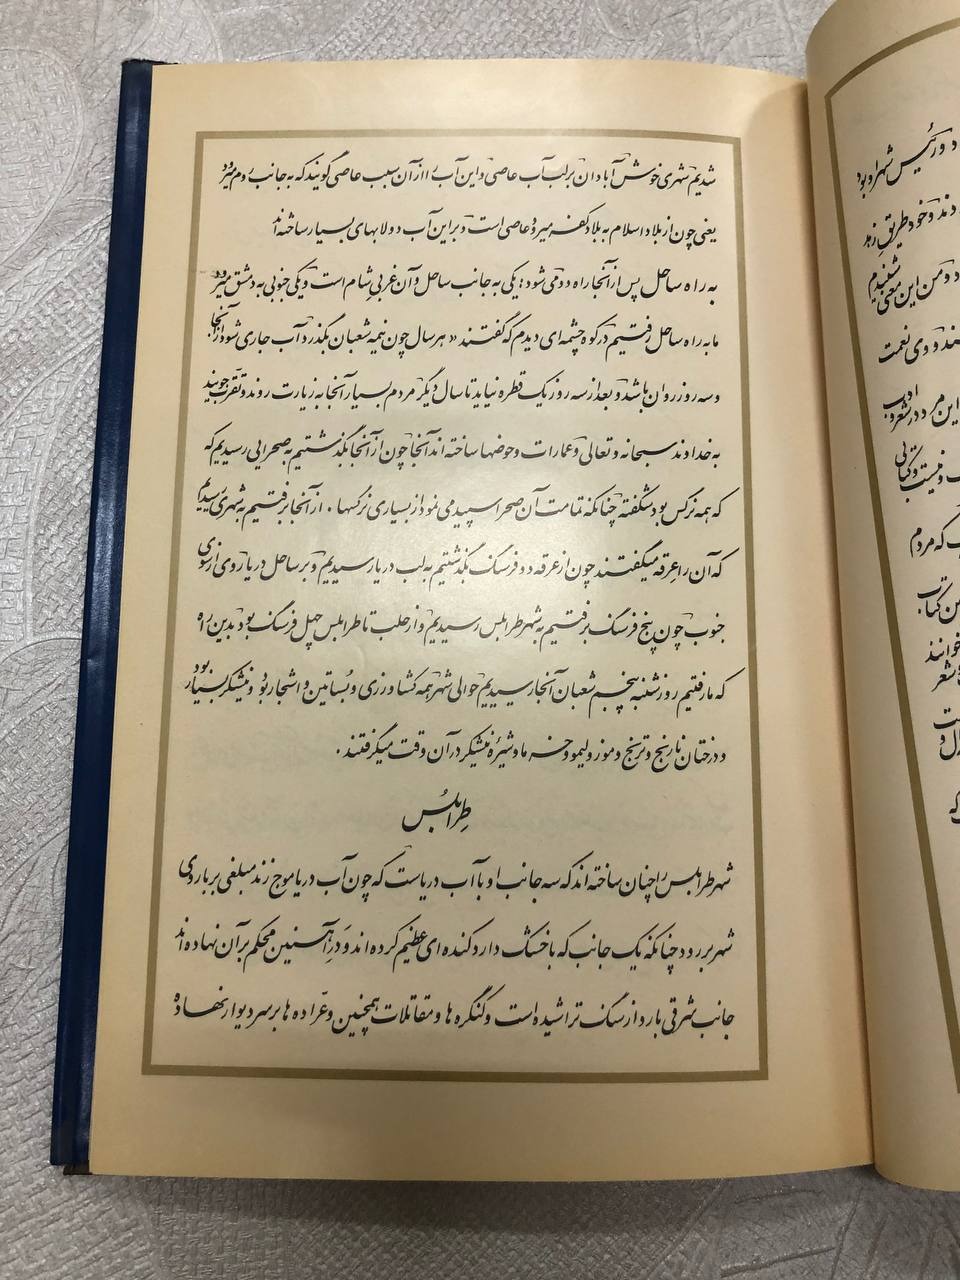 شدیم شهری خوش آبادان بر لب آب عاصی و این آب را از آن سبب عاصی گویند که به جانب روم میرود
یعنی چون از بلاد اسلام به بلاد کفر میرود عاصی است و بر این آب دولابهای بسیار ساخته‌اند
به راه ساحل پس از آنجا راه دو می‌شود: یکی به جانب ساحل و آن غربی شام است و یکی جنوبی به دمشق میرود
ما به راه ساحل رفتیم در کوه چشمه‌ای دیدم که گفتند «هر سال چون نیمه شعبان بگذرد آب جاری شود از آنجا
و سه روز روان باشد و بعد از سه روز یک قطره نیاید تا سال دیگر مردم بسیار آنجا به زیارت روند و تقرب جویند
به خداوند سبحانه و تعالی و عمارات و حوضها ساخته‌اند آنجا چون از آنجا بگذشتیم به صحرایی رسیدیم که
که همه نرگس بود شکفته چنانکه تمامت آن صحرا سپید می نمود از بسیاری نرگسها. از آنجا برفتیم به شهری رسیدیم
که آن را عرقه میگفتند چون از عرقه دو فرسنگ بگذشتیم به لب دریا رسیدیم و بر ساحل دریا روی از سوی
جنوب چون پنج فرسنگ برفتیم به شهر طرابلس رسیدیم و از حلب تا طرابلس چهل فرسنگ بود بدین راه
که ما رفتیم روز شنبه پنجم شعبان آنجا رسیدیم حوالی شهر همه کشاورزی و بساتین و اشجار بود و نیشکر بسیار بود
و درختان نارنج و ترنج و موز و لیمو و خرما و شیره نیشکر در آن وقت میگرفتند.
طرابلس
شهر طرابلس را چنان ساخته‌اند که سه جانب او با آب دریاست که چون آب دریا موج زند مبلغی بر باروی
شهر بر رود چنانکه یک جانب که با خشک دارد کنده‌ای عظیم کرده‌اند و در آهنین محکم بر آن نهاده‌اند
جانب شرقی بارو از سنگ تراشیده است و کنگره ها و مقاتلات همچنین و عراده ها بر سر دیوار نهاده